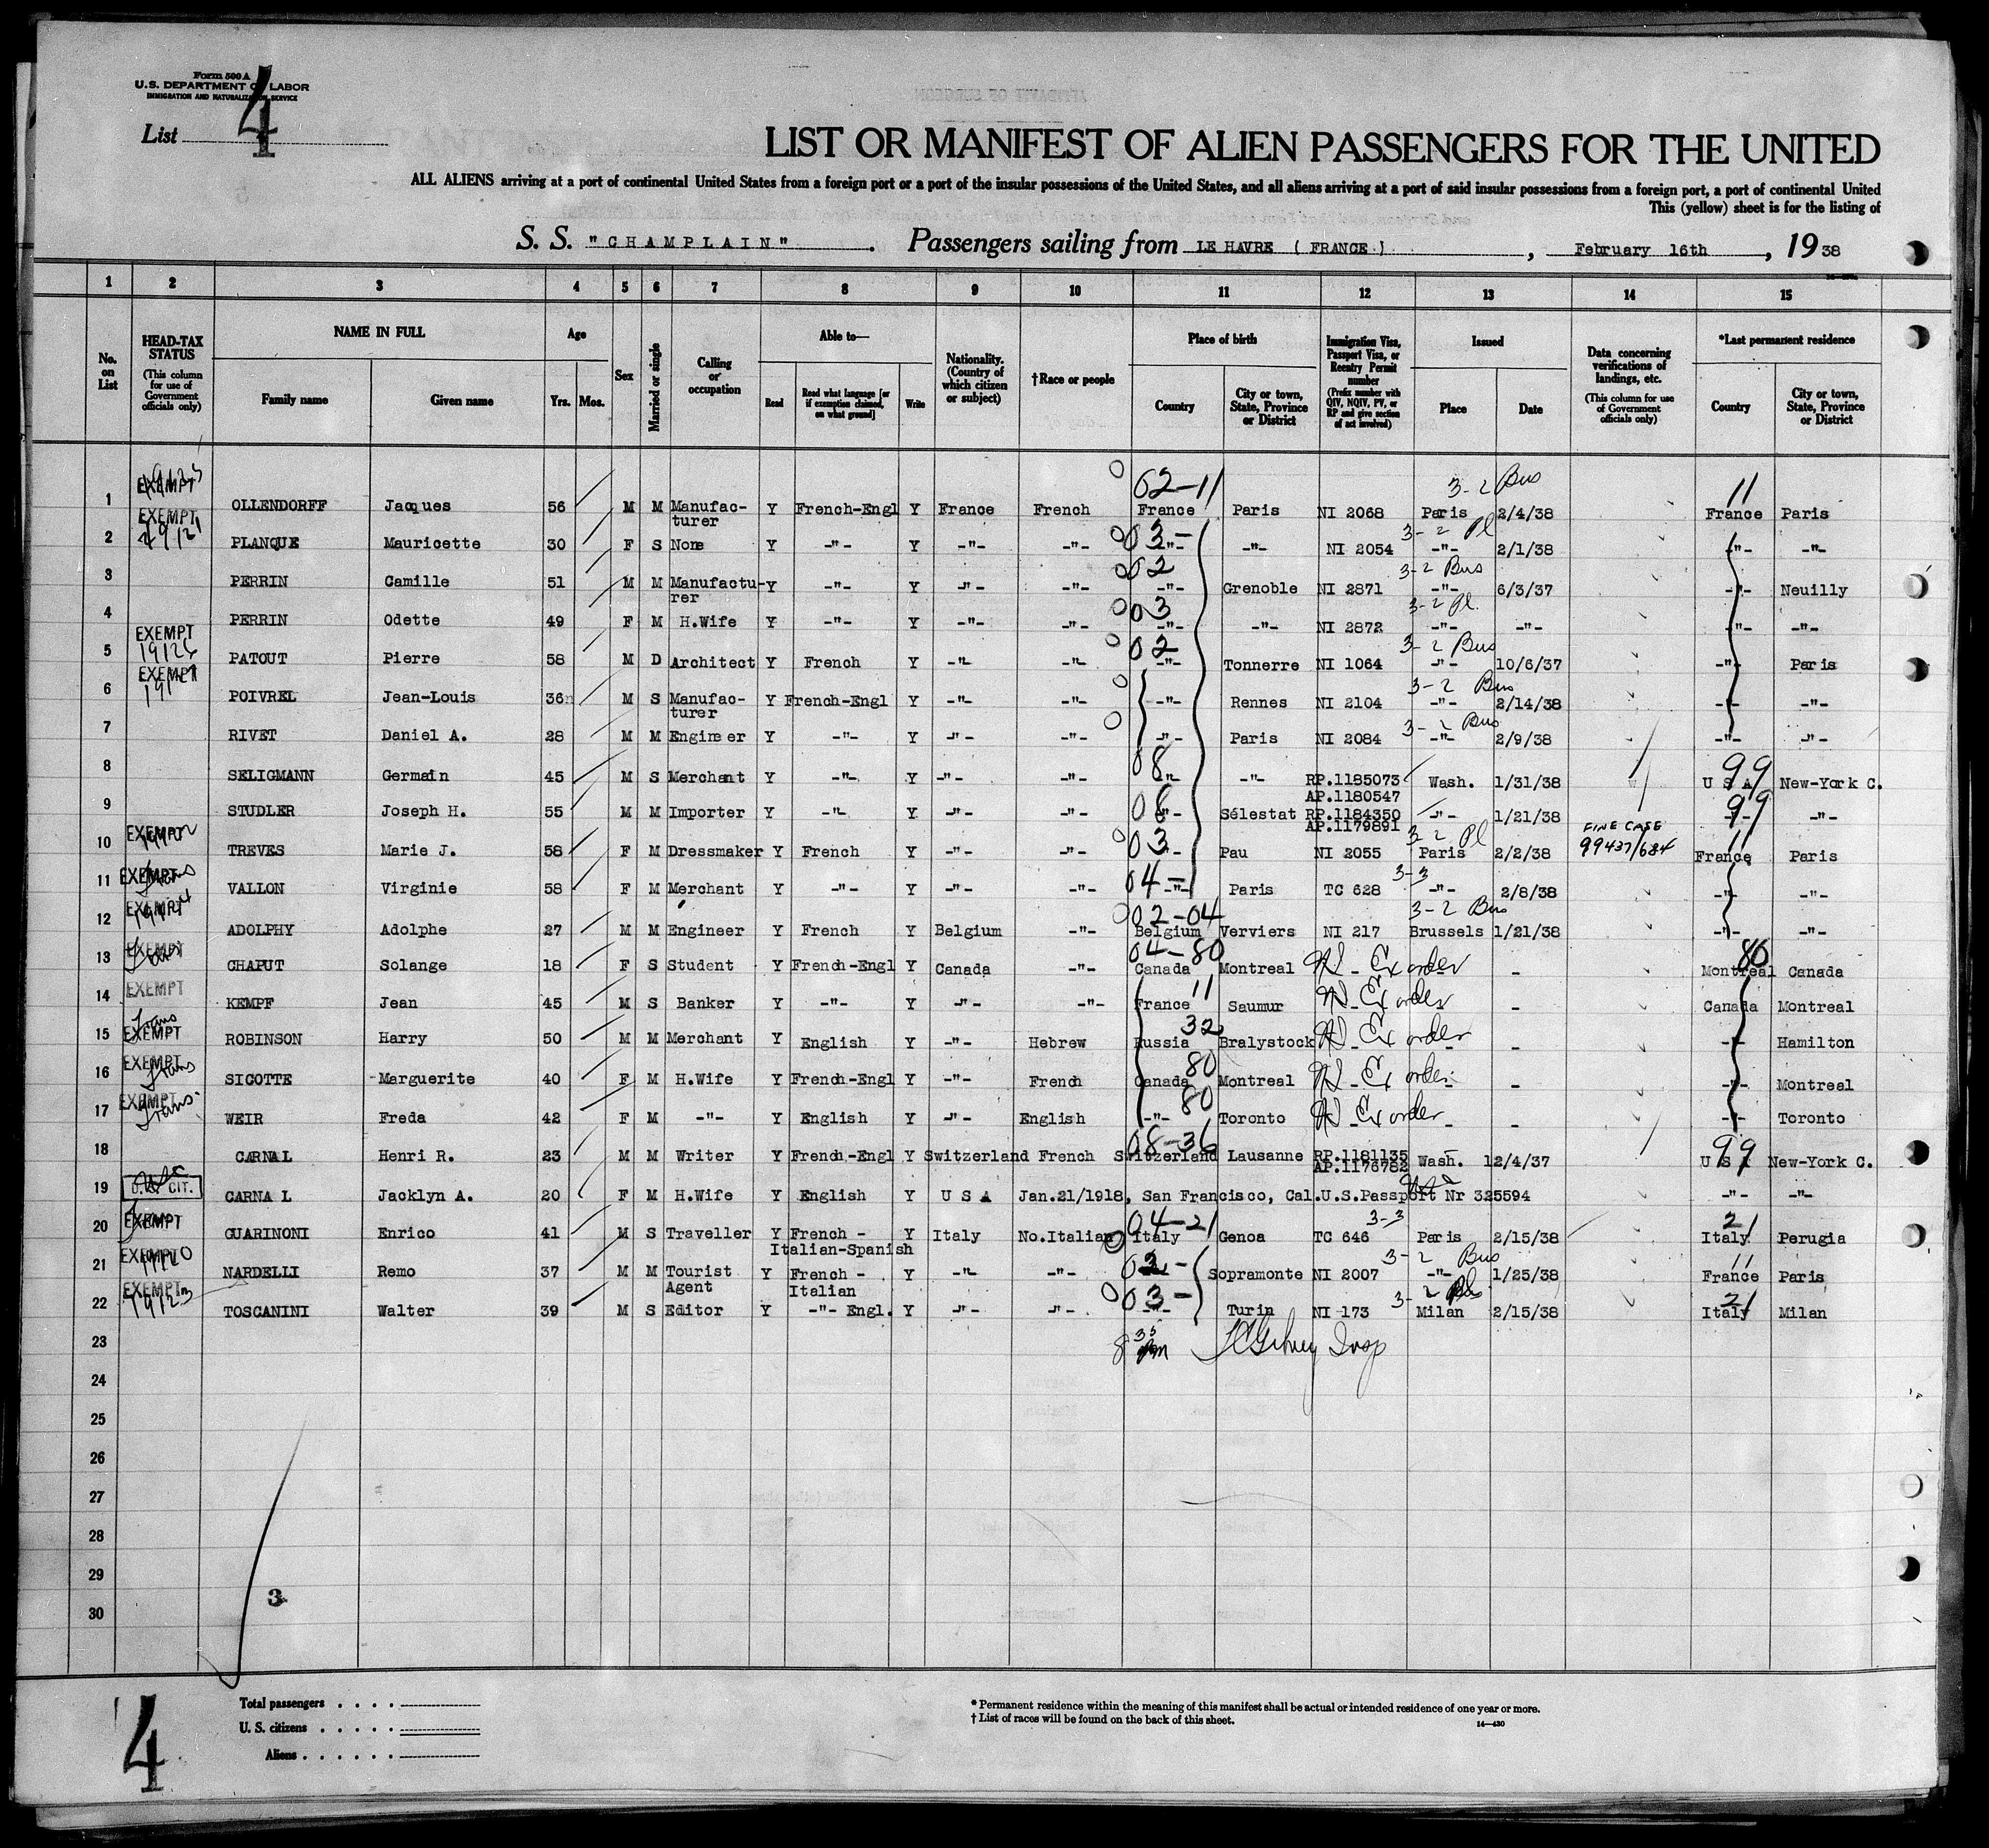 Form 500 A
U.S. DEPARTMENT OF LABOR
IMMIGRATION AND NATURALIZATION SERVICE
List 4
LIST OR MANIFEST OF ALIEN PASSENGERS FOR THE UNITED
ALL ALIENS arriving at a port of continental United States from a foreign port or a port of the insular possessions of the United States, and all aliens arriving at a port of said insular possessions from a foreign port, a port of continental United
This (yellow) sheet is for the listing of
S. S. "CHAMPLAIN" . Passengers sailing from LE HAVRE ( FRANCE ) , February 16th , 19 38
1 2 3 4 5 6 7 8 9 10 11 12 13 14 15
No. on List
HEAD-TAX STATUS (This column for use of Government officials only)
NAME IN FULL Family name Given name
Age Yrs. Mos.
Sex
Married or single
Calling or occupation
Able to— Read Read what language [or if exemption claimed, on what ground] Write
Nationality. (Country of which citizen or subject)
†Race or people
Place of birth Country City or town, State, Province or District
Immigration Visa, Passport Visa, or Reentry Permit number (Prefix number with QIV, NQIV, PV, or RP and give section of act involved)
Issued Place Date
Data concerning verifications of landings, etc. (This column for use of Government officials only)
*Last permanent residence Country City or town, State, Province or District
02-11 3-2 Bus 11
1 EXEMPT OLLENDORFF Jacques 56 M M Manufacturer Y French-Engl Y France French France Paris NI 2068 Paris 2/4/38 France Paris
03- 3-2 Pl
2 EXEMPT PLANQUE Mauricette 30 F S None Y -"- Y -"- -"- -"- -"- NI 2054 -"- 2/1/38 -"- -"-
02 3-2 Bus
3 PERRIN Camille 51 M M Manufacturer Y -"- Y -"- -"- -"- Grenoble NI 2871 -"- 6/3/37 -"- Neuilly
03 3-2 Pl.
4 PERRIN Odette 49 F M H.Wife Y -"- Y -"- -"- -"- -"- NI 2872 -"- -"- -"- -"-
02 3-2 Bus
5 EXEMPT PATOUT Pierre 58 M D Architect Y French Y -"- -"- -"- Tonnerre NI 1064 -"- 10/6/37 -"- Paris
3-2 Bus
6 EXEMPT POIVREL Jean-Louis 36 M S Manufacturer Y French-Engl Y -"- -"- -"- Rennes NI 2104 -"- 2/14/38 -"- -"-
3-2 Bus
7 RIVET Daniel A. 28 M M Engineer Y -"- Y -"- -"- -"- Paris NI 2084 -"- 2/9/38 -"- -"-
08 99
8 SELIGMANN Germain 45 M S Merchant Y -"- Y -"- -"- -"- -"- RP.1185073 AP.1180547 Wash. 1/31/38 U S A New-York C.
08 99
9 STUDLER Joseph H. 55 M M Importer Y -"- Y -"- -"- -"- Sélestat RP.1184350 AP.1179891 -"- 1/21/38 -"- -"-
03 3-2 Pl FINE CASE 99437/684 11
10 EXEMPT TREVES Marie J. 58 F M Dressmaker Y French Y -"- -"- -"- Pau NI 2055 Paris 2/2/38 France Paris
04- 3-3
11 EXEMPT VALLON Virginie 58 F M Merchant Y -"- Y -"- -"- -"- Paris TC 628 -"- 2/8/38 -"- -"-
02-04 3-2 Bus
12 EXEMPT ADOLPHY Adolphe 27 M M Engineer Y French Y Belgium -"- Belgium Verviers NI 217 Brussels 1/21/38 -"- -"-
04-80 80
13 EXEMPT CHAPUT Solange 18 F S Student Y French-Engl Y Canada -"- Canada Montreal Ex order - Montreal Canada
11
14 EXEMPT KEMPF Jean 45 M S Banker Y -"- Y -"- -"- France Saumur Ex order - Canada Montreal
32
15 Trans EXEMPT ROBINSON Harry 50 M M Merchant Y English Y -"- Hebrew Russia Bralystock Ex order - -"- Hamilton
80
16 EXEMPT Trans SICOTTE Marguerite 40 F M H.Wife Y French-Engl Y -"- French Canada Montreal Ex order - -"- Montreal
80
17 EXEMPT Trans. WEIR Freda 42 F M -"- Y English Y -"- English -"- Toronto Ex order - -"- Toronto
08-36 99
18 CARNAL Henri R. 23 M M Writer Y French-Engl Y Switzerland French Switzerland Lausanne RP.1181135 AP.1176782 Wash. 12/4/37 U S A New-York C.
19 U.S. CIT. CARNAL Jacklyn A. 20 F M H.Wife Y English Y U S A Jan.21/1918, San Francisco, Cal.U.S.Passport Nr 325594 -"- -"-
04-21 3-3 21
20 EXEMPT GUARINONI Enrico 41 M S Traveller Y French - Italian-Spanish Y Italy No.Italian Italy Genoa TC 646 Paris 2/15/38 Italy Perugia
3-2 Bus 11
21 EXEMPT NARDELLI Remo 37 M M Tourist Agent Y French - Italian Y -"- -"- Sopramonte NI 2007 -"- 1/25/38 France Paris
03- 3-2 21
22 EXEMPT 19123 TOSCANINI Walter 39 M S Editor Y -"- Engl. Y -"- -"- -"- Turin NI 173 Milan 2/15/38 Italy Milan
23 8 35 pm Insp
24
25
26
27
28
29
3
30
4
Total passengers . . . .
U. S. citizens . . . . .
Aliens . . . . . .
* Permanent residence within the meaning of this manifest shall be actual or intended residence of one year or more.
† List of races will be found on the back of this sheet.
14—430